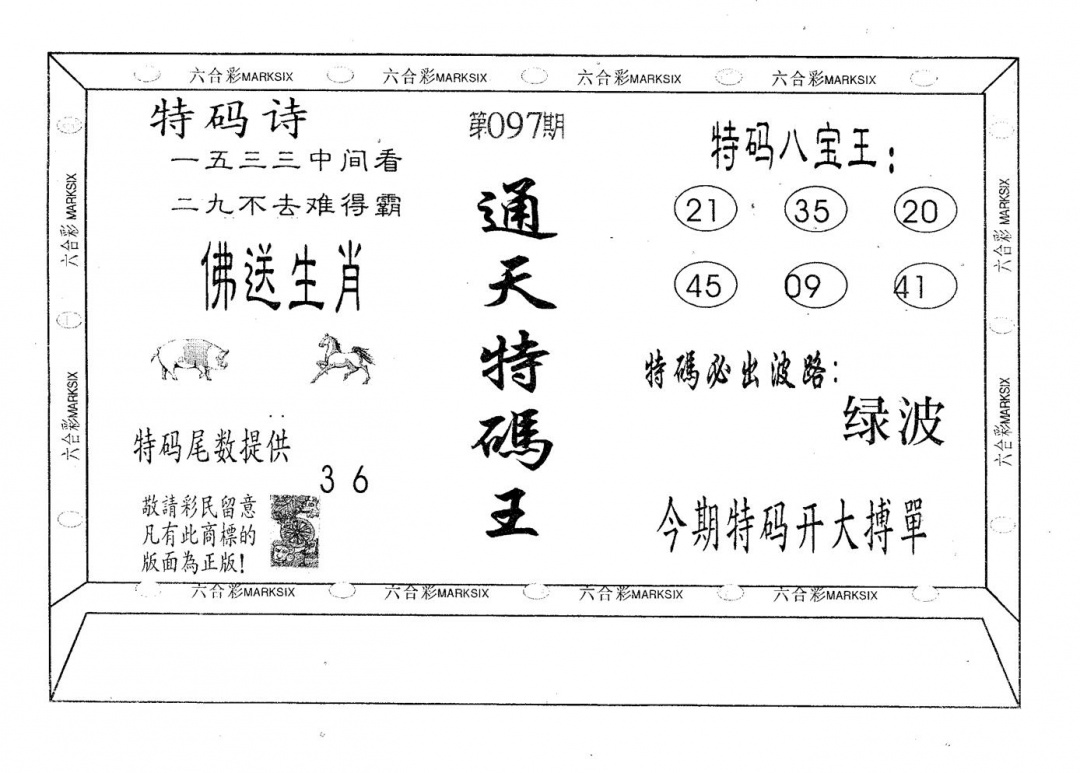 六合彩MARKSIX 六合彩MARKSIX 六合彩MARKSIX 六合彩MARKSIX
六合彩 MARKSIX
六合彩MARKSIX
特码诗
一五三三中间看
二九不去难得霸
佛送生肖
特码尾数提供
3 6
敬請彩民留意
凡有此商標的
版面為正版!
第097期
通天特碼王
特码八宝王:
21 35 20
45 09 41
特碼必出波路:
绿波
今期特码开大搏單
六合彩 MARKSIX
六合彩MARKSIX
六合彩MARKSIX 六合彩MARKSIX 六合彩MARKSIX 六合彩MARKSIX